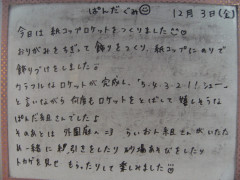 ぱんだぐみ
12月3日(金)
今日は紙コップロケットをつくりました
おりがみをちぎって飾りをつくり、紙コップにのりで
飾りつけをしました
カラフルなロケットが完成し、「5・4・3・2・1!シュー」
と言いながら何度もロケットをとばして嬉しそうな
ぱんだ組さんでした♪
そのあとは外園庭へ らいおん組さんがいた
ので一緒に綱引きをしたり砂場あそびをしたり
トカゲを見せてもらったりして楽しみました